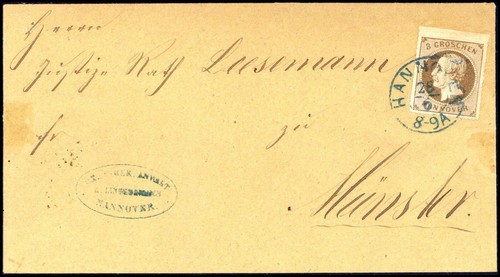 Herrn
Justiz-Rath Leesemann
zu
Münster.
3 GROSCHEN
HANNOVER
HANN
28
8-9A
ANWALT
HANNOVER.